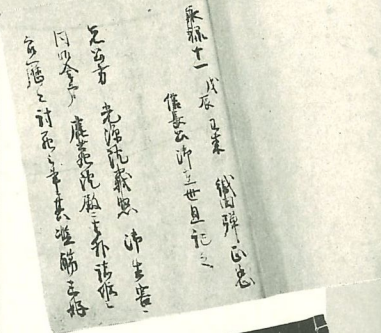 永禄十一 戊辰 以来 織田弾正忠
信長公御在世且記之
先公方 光源院義照 御生害
同御舎弟 鹿苑院殿其外諸侯之
衆歴々討死之事其濫觴三好